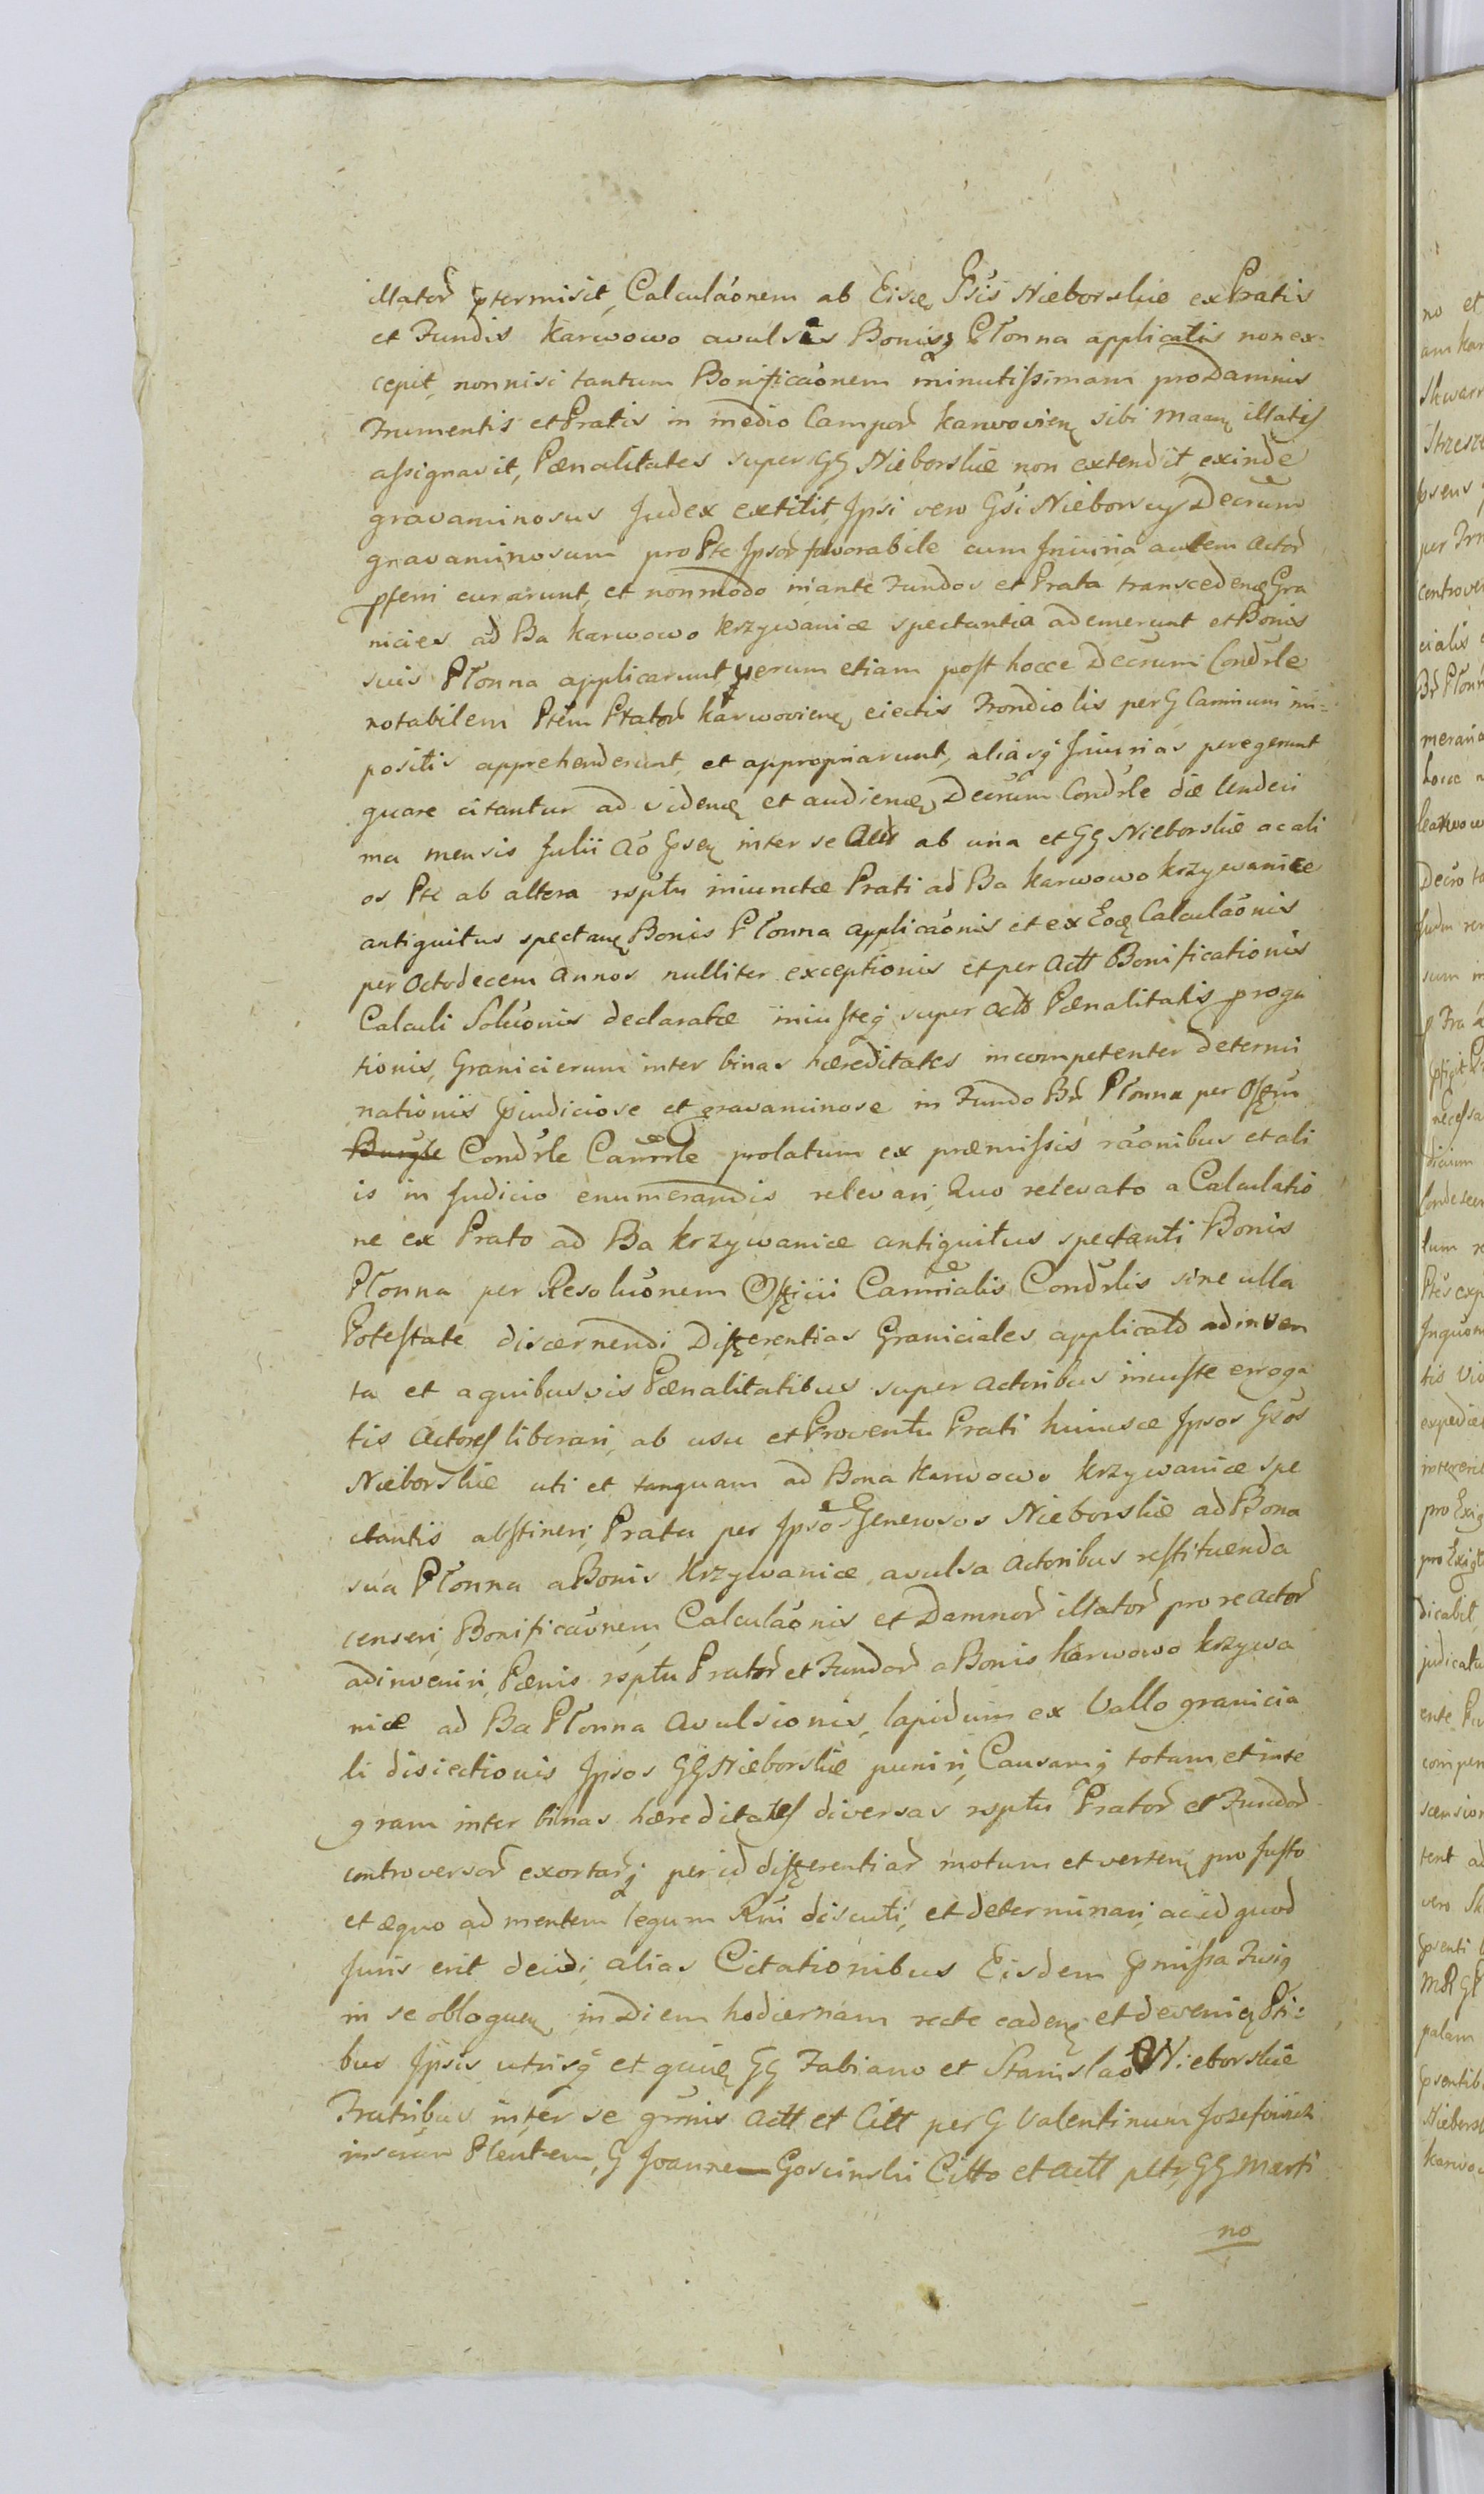 illator ptermisit, Calculaonem ab Eisd Gsis Nieborskie ex Pratis
et Fundis Karwowo avulsis Bonisq Płonna applicatis non ex-
cepit, nonnisi tantum Bonificaonem minutissimam pro Damnis
Frumentis et Pratis in medio Campor Karwovien sibi illatis
assignavit, Pænalitates super GG Nieborskie non extendit, exinde
gravaminosus Judex extitit, Ipsi vero Gsi Nieborscy Decrum
gravaminosum pro Pte Ipsor favorabile cum Iniuria autem Actor
pferri curarunt, et nonmodo inante Fundos et Prata transcedend Gra
nicies ad Ba Karwowo Krzywanice spectantia ademerunt et Bonis
suis Płonna applicarunt verum etiam post hocce Decrum Condrle
notabilem Ptem Prator Karwovien, eiectis Frondiolis per G Camnium im-
positis apprehenderunt, et appropriarunt, aliasq Iniurias peregerunt
quare citantur ad vidend et audiend Decrum Condrle die Undeci
ma mensis Julii Ao psen inter se Actt ab una et GG Nieborskie ac ali
os Pte ab altera rsptu iniunctæ Prati ad Ba Karwowo Krzywanice
antiquitus spectan Bonis Płonna applicaonis et ex Eod Calculaonis
per Octodecem Annos nulliter exceptionis et per Actt Bonificationis
Calculi Soluonis declaratæ iniusteq super Actt Pænalitatis proga
tionis, Granicierum inter binas hæreditates incompetenter determi
nationis pjudiciose et gravaminose in Fundo Br Płonna per Offm
Condrle Camrle prolatum ex præmissis raonibus et ali
is in Judicio enumerandis relevari, Quo relevato a Calculatio
ne ex Prato ad Ba Krzywanice antiquitus spectanti Bonis
Płonna per Resoluonem Officii Camrialis Condrlis sine ulla
Potestate discernendi Differentias Graniciales applicato adinven
ta et a quibusvis Pænalitatibus super Actoribus iniuste erroga
tis Actores liberari, ab usu et Proventu Prati huiusce Ipsos Gsos
Nieborskie uti et tanquam ad Bona Karwowo Krzywanice spe
ctantis abstineri, Prata per Ipsos Generosos Nieborskie ad Bona
sua Płonna a Bonis Krzywanice avulsa Actoribus restituenda
censeri, Bonificaonem, Calculaonis et Damnor illator pro re Actor
adinveniri, Pænis rsptu Prator et Fundor a Bonis Karwowo Krzywa
nice ad Ba Płonna avulsionis, lapidum ex Vallo granicia
li disiectionis Ipsos GG Nieborskie puniri, Causamq totam et inte
gram inter binas hæreditates diversas rsptu Prator et Fundor
controversor exortarq per id differentiar motum et verten pro Justo
et æquo ad mentem legum Rni discuti, et determinari, ac id quod
Juris erit decidi, alias Citationibus Eisdem pmissa Fusiq
in se obloquen, in Diem hodiernam recte caden et devenien Pti-
bus Ipsis utrisq et quid GG Fabiano et Stanislao Nieborskie
Fratribus inter se gnis Actt et Citt per G Valentinum Jozefowicz
insrum Plentem, G Joanne Goscinski Citto et Actt pltr GG Marti
no